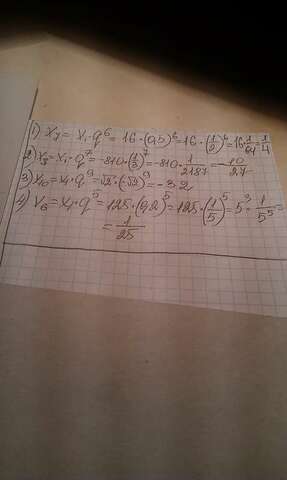 1) X₇ = X₁·q⁶ = 16·(0,5)⁶ = 16·(1/2)⁶ = 16·1/64 = 1/4
2) X₈ = X₁·q⁷ = -810·(1/3)⁷ = -810·1/2187 = -10/27
3) X₁₀ = X₁·q⁹ = √2·(-√2)⁹ = -32
4) X₆ = X₁·q⁵ = 125·(0,2)⁵ = 125·(1/5)⁵ = 5³·1/5⁵ =
= 1/25